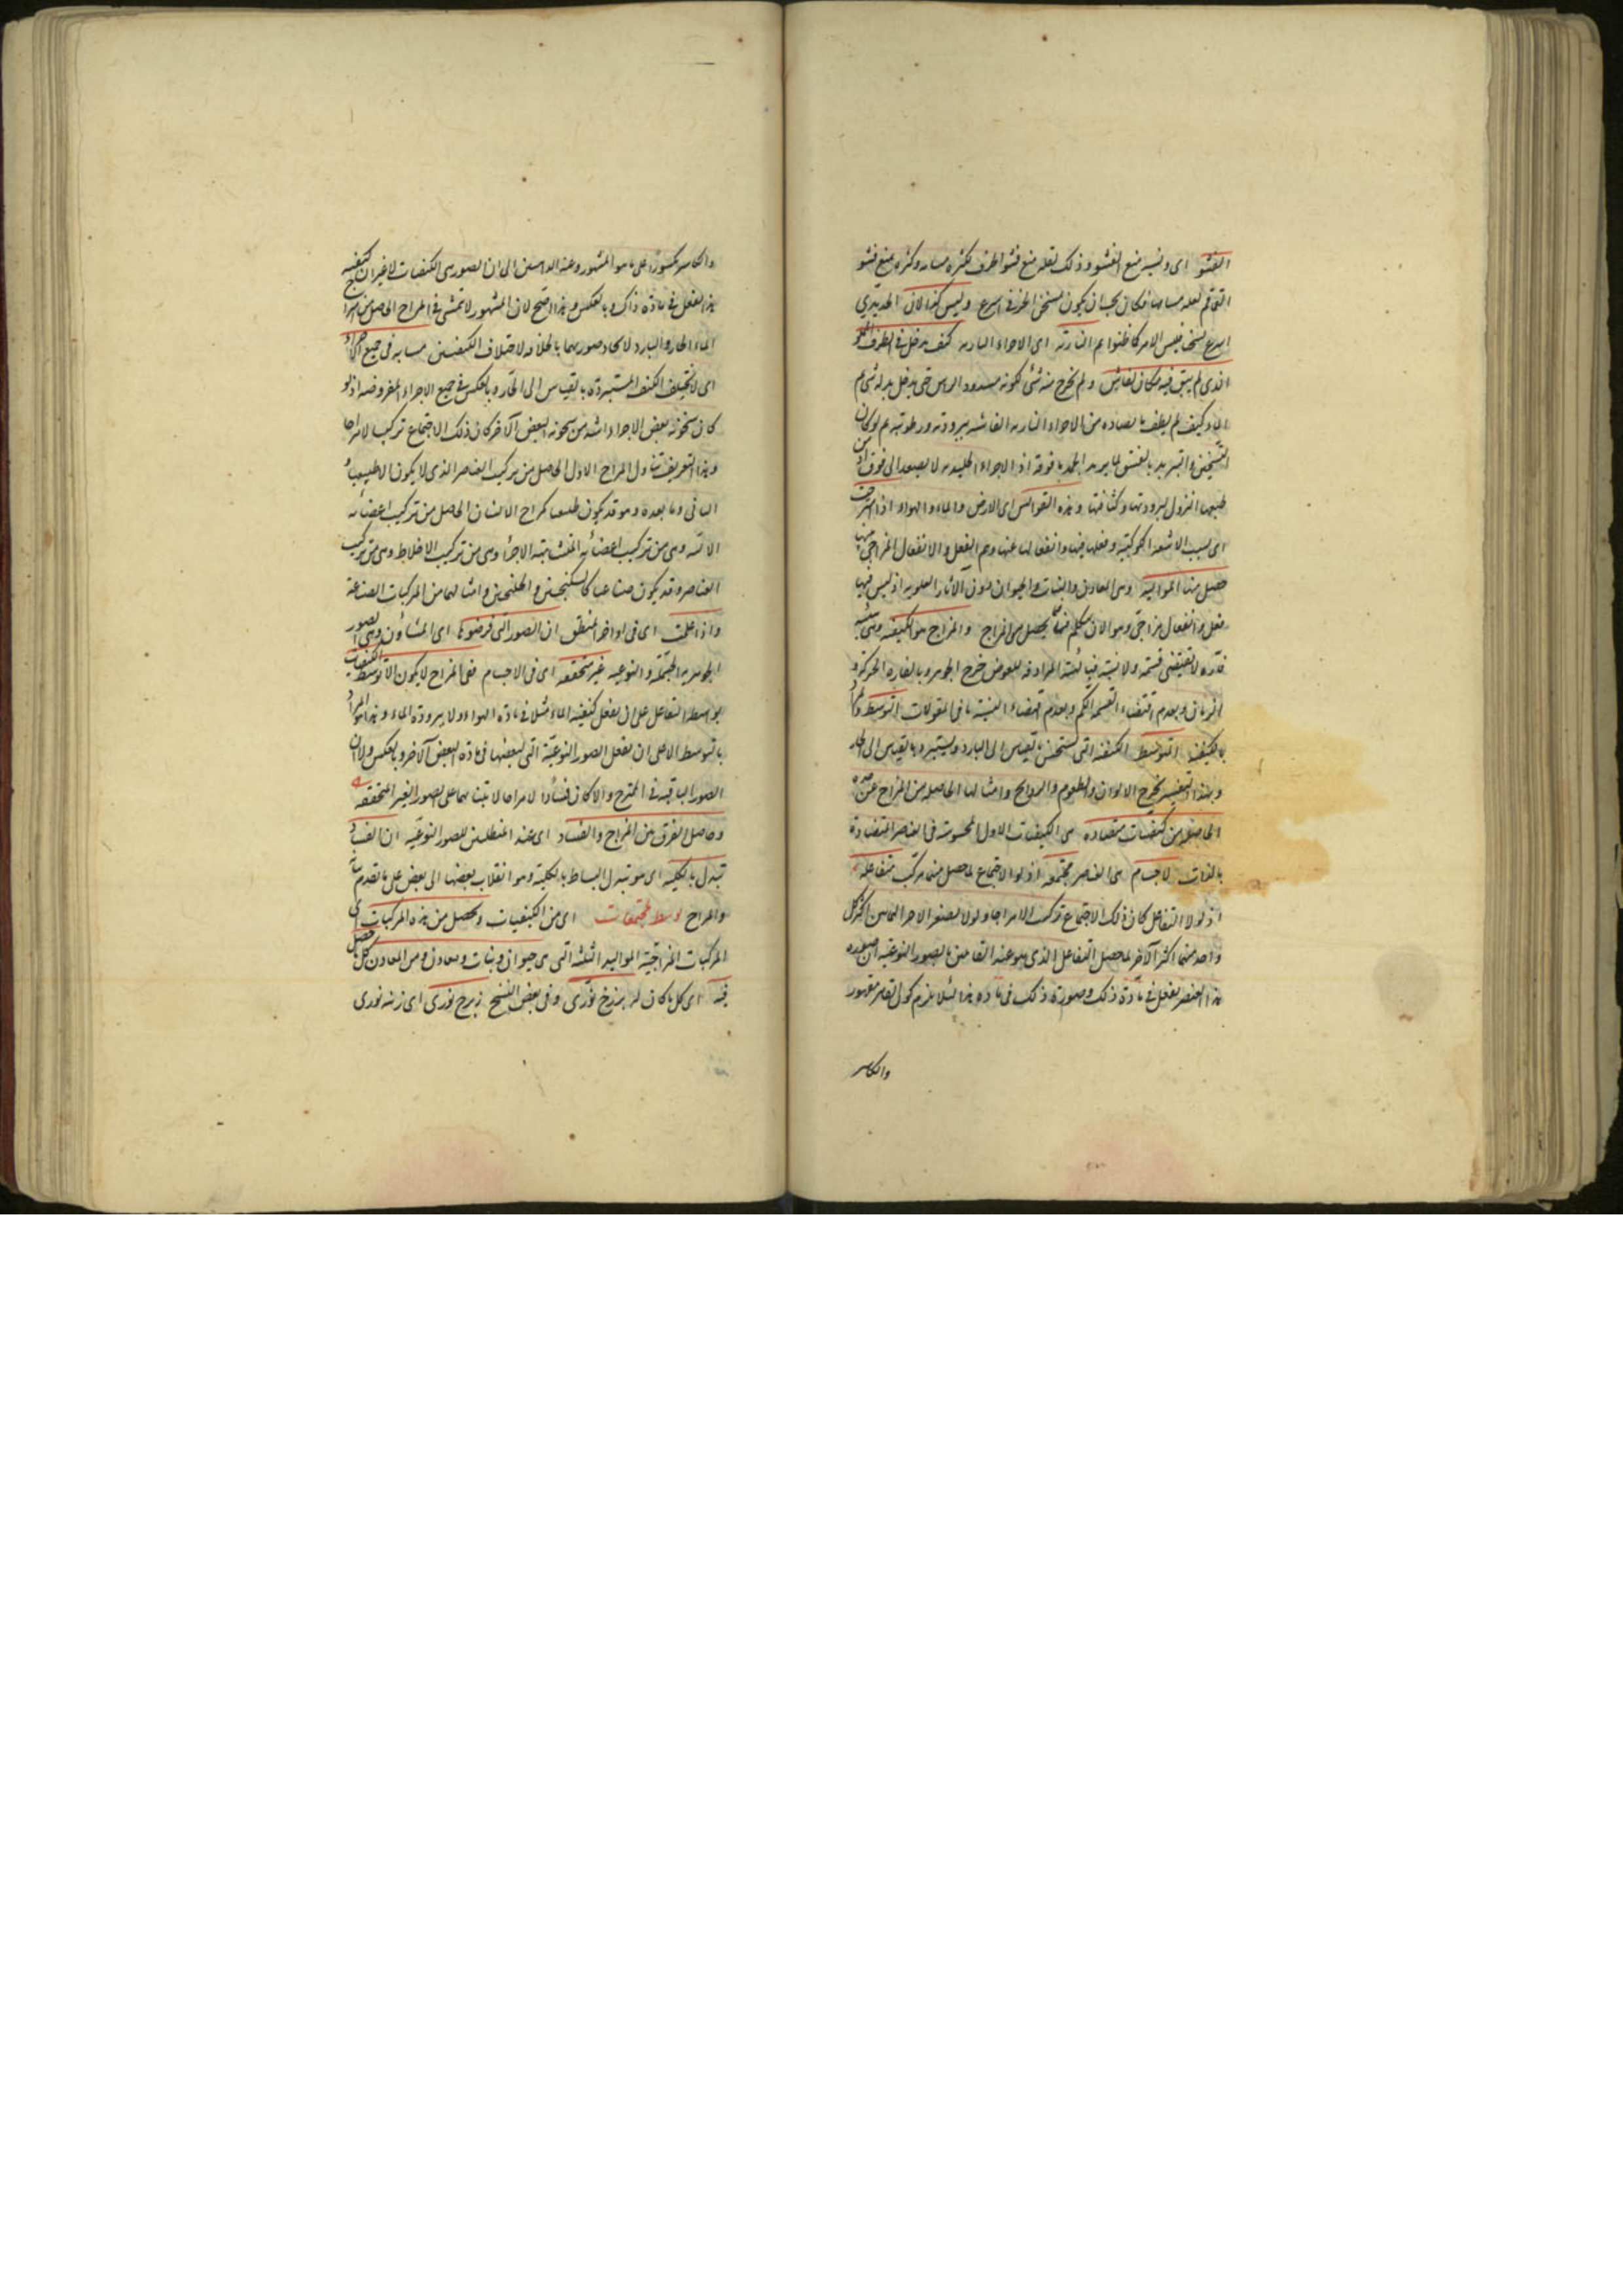 الفشو اى ونسبة منع الفشو وذلك لقلة منع فشو اطرف كثرة مسامه وكثرة منع فشو
القمقم لقلة مسامها فكان يجب ان يكون تسخن الخزفى اسرع وليس كذا لان الحديدى
اسرع تسخنا فليس الامر كما ظنوا ثم النارية اى الاجزاء النارية كيف يدخل فى الظرف المملو
الذى لم يبق فيه مكان لفاش ولم يخرج منه شئ لكونه مسدود الراس حتى يدخل بدله شئ ثم
الماء كيف لم يطف ما يصاده من الاجزاء النارية الفاشية ببرودته ورطوبته ثم لو كان
التسخين والتبريد بالفشو لما يبرد الجمد ما فوقه اذ الاجزاء الجليدية لا يصعد الى فوق اذ من
طبعها النزول لبرودتها وكثافتها وهذه القوابس اى الارض والماء والهواء اذا امتزجت
اى بسبب الاشعة الكوكبية وفعلها فيها وانفعالها عنها وتم الفعل والانفعال المزاجى بينها
حصل منها المواليد وهى المعادن والنبات والحيوان دون الآثار العلوية اذ ليس فيها
فعل وانفعال مزاجى وهو الان يتكلم فيما يحصل من المزاج والمزاج هو الكيفية وهى هيئة
قارة لا تقتضى قسمة ولا نسبة فبالهيئة المرادفة للعرض خرج الجوهر وبالقارة الحركة و
الزمان وبعدم اقتضاء القسمة الكم وبعدم اقتضاء النسبة باقى المقولات المتوسطة والمراد
بالكيفية المتوسطة الكيفية التى تستسخن بالقياس الى البارد وتستبرد بالقياس الى الحار
وبهذا التفسير يخرج الالوان والطعوم والروايح وامثالها الحاصلة من المزاج عن حده
الحاصلة من كيفيات متضادة هى الكيفيات الاول المحسوسة فى العناصر المتضادة
بالذات لاجسام هى العناصر مجتمعة اذ لولا الاجتماع لما حصل منها مركب متفاعلة
اذ لولا التفاعل كان ذلك الاجتماع تركيبا لا مزاجا ولولا تصغر الاجزاء لتماس اكثر كل
واحد منها اكثر الآخر لما حصل التفاعل الذى هو عند القائلين بالصور النوعية ان صورة
هذا العنصر يفعل فى مادة ذلك وصورة ذلك فى مادة هذا لئلا يلزم كون القاسر مقسورا
والكاسر
والكاسر مكسورا على ما هو المشهور وعند الذاهبين الى ان الصور هى الكيفيات لا غير ان كيفية
هذا يفعل فى مادة ذاك وبالعكس وهذا اصح لان المشهور لا يتمشى فى المزاج الحاصل من امتزاج
الماء الحار والبارد لاتحاد صورتهما بالماء ولاختلاف الكيفيتين متشابهة فى جميع الاجزاء
اى لا تختلف الكيفية المستبردة بالقياس الى الحار وبالعكس فى جميع الاجزاء المفروضة اذ لو
كان سخونة بعض الاجزاء اشد من سخونة البعض الآخر كان ذلك الاجتماع تركيبا لا مزاجا
وهذا التعريف يتناول المزاج الاول الحاصل من تركيب العناصر الذى لا يكون الا طبيعيا و
الثانى وما بعده وهو قد يكون طبيعيا كمزاج الانسان الحاصل من تركيب اعضائه
الآلية وهى من تركيب اعضائه المتشابهة الاجزاء وهى من تركيب الاخلاط وهى من تركيب
العناصر وقد يكون صناعيا كالسكنجبين والجلنجبين وامثالهما من المركبات الصناعية
واذا علمت اى فى اواخر المنطق ان الصور التى فرضوها اى المشاؤن وهى الصور
الجوهرية الجسمية والنوعية غير متحققة اى فى الاجسام ففى المزاج لا يكون الا توسط الكيفيات
بواسطة التفاعل على ان يفعل كيفية الماء مثلا فى مادة الهواء ولا برودة الماء وهذا هو المراد
بالتوسط لا على ان يفعل الصور النوعية التى لبعضها فى مادة البعض الآخر وبالعكس ولا ان
الصور الباقية فى الممتزج والا كان فسادا لا مزاجا لابتنائهما على الصور الغير المتحققة
وحاصل الفرق بين المزاج والفساد اى عند المبطلين للصور النوعية ان الفساد
تبدل بالكلية اى هو تبدل البسائط بالكلية وهو انقلاب بعضها الى بعض على ما تقدم بيانه
والمزاج توسط مجتمعات اى من الكيفيات ويحصل من هذه المركبات اى
المركبات المزاجية المواليد الثلثة التى هى حيوان ونبات ومعادن ومن المعادن كل ما حصل
فيه اى كل ما كان له برزخ نورى وفى بعض النسخ زبرج نورى اى زينة نورى